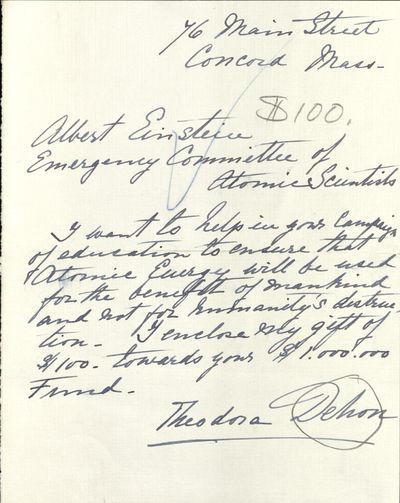 76 Main Street
Concord Mass-
$100.
Albert Einstein
Emergency Committee of
Atomic Scientists
I want to help in your Campaign
of education to ensure that
Atomic Energy will be used
for the benefit of mankind
and not for humanity's destruc-
tion - I enclose my gift of
$100- towards your $1.000.000
Fund -
Theodora Dehon